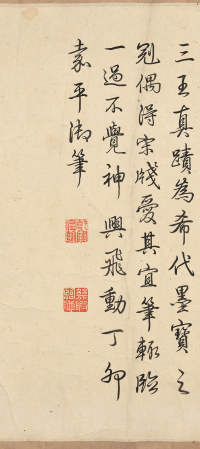 三王真蹟為希代墨寶之
冠偶得宋牋愛其宜筆輒臨
一過不覺神興飛動丁卯
嘉平御筆